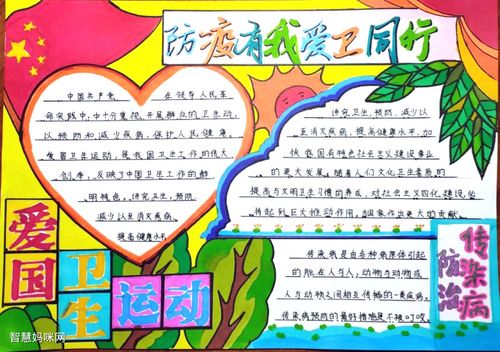 防疫有我爱卫同行
中国共产党 在领导人民革
命实践中,十分重视开展群众的卫生动,
以预防和减少疾病,保护人民健康。
爱国卫生运动,是我国卫生工作的伟大
创举,反映了中国卫生工作的鲜
明特色。讲究卫生,预防
减少以至消灭疾病,
提高健康水平
讲究卫生,预防,减少以
至消灭疾病,提高健康水平,加
快我国有特色社会主义建设事业
的更大发展。随着人们文化卫生素质的
提高与文明卫生习惯的养成,对社会主义四化建设,必
将起到巨大推动作用,为国家作出更大的贡献。
爱国
卫生
运动
传染病
防治
传染病是由各种病原体引起
的能在人与人,动物与动物或
人与动物之间相互传播的一类疾病。
传染病预防的最好措施是不被叮咬。
智慧妈咪网